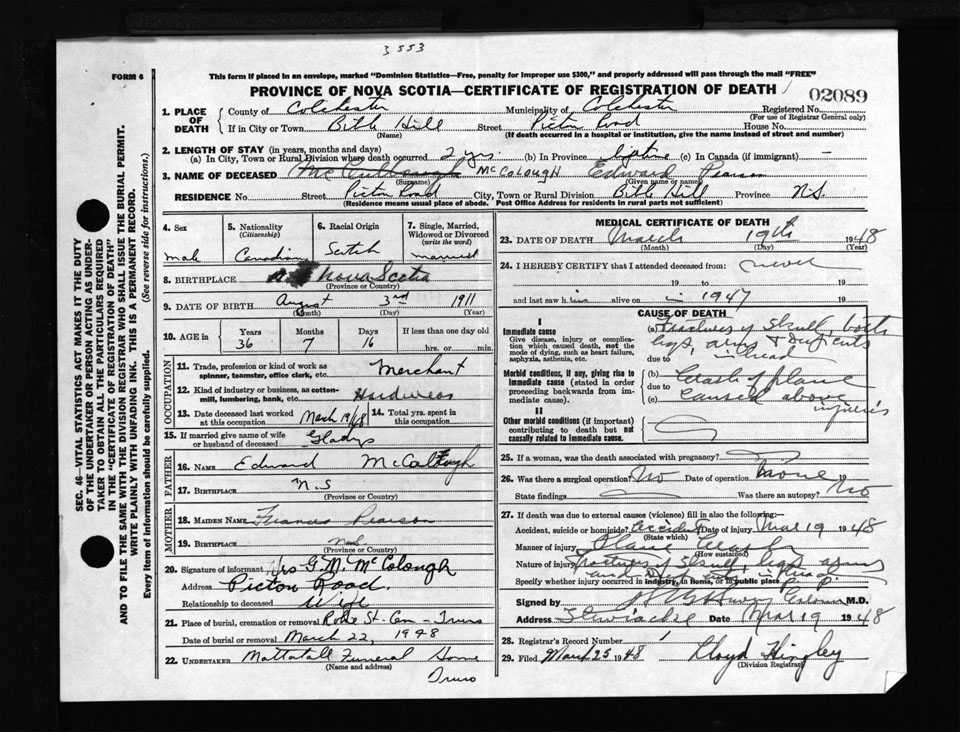 3553
FORM 6
This form if placed in an envelope, marked "Dominion Statistics—Free, penalty for improper use $300," and properly addressed will pass through the mail "FREE"
PROVINCE OF NOVA SCOTIA—CERTIFICATE OF REGISTRATION OF DEATH
02089
1. PLACE OF DEATH
County of Colchester Municipality of Colchester Registered No.
(For use of Registrar General only)
If in City or Town Bible Hill Street Picton Road House No.
(Name) (If death occurred in a hospital or institution, give the name instead of street and number)
2. LENGTH OF STAY (in years, months and days)
(a) In City, Town or Rural Division where death occurred 2 yrs. (b) In Province lifetime (c) In Canada (if immigrant) –
3. NAME OF DECEASED McColough Edward Pearson
(Surname) (Given name or names)
RESIDENCE No. Street Picton Road City, Town or Rural Division Bible Hill Province N.S.
(Residence means usual place of abode. Post Office Address for residents in rural parts not sufficient)
4. Sex male
5. Nationality (Citizenship) Canadian
6. Racial Origin Scotch
7. Single, Married, Widowed or Divorced (write the word) married
8. BIRTHPLACE Nova Scotia
(Province or Country)
9. DATE OF BIRTH August 3rd 1911
(Month) (Day) (Year)
10. AGE in Years 36 Months 7 Days 16 If less than one day old hrs. or min.
OCCUPATION
11. Trade, profession or kind of work as spinner, teamster, office clerk, etc. Merchant
12. Kind of industry or business, as cotton-mill, lumbering, bank, etc. Hardware
13. Date deceased last worked at this occupation March 19/48
14. Total yrs. spent in this occupation
15. If married give name of wife or husband of deceased Gladys
FATHER
16. NAME Edward McColough
17. BIRTHPLACE N.S
(Province or Country)
MOTHER
18. MAIDEN NAME Frances Pearson
19. BIRTHPLACE N.S.
(Province or Country)
20. Signature of informant Mrs G. M. McColough
Address Picton Road.
Relationship to deceased Wife
21. Place of burial, cremation or removal Robie St. Cem – Truro
Date of burial or removal March 22, 1948
22. UNDERTAKER Mattatall Funeral Home
(Name and address)
Truro
MEDICAL CERTIFICATE OF DEATH
23. DATE OF DEATH March 19th 1948
(Month) (Day) (Year)
24. I HEREBY CERTIFY that I attended deceased from: never
19 to 19
and last saw him alive on in 1947 19
CAUSE OF DEATH
I
Immediate cause
Give disease, injury or complication which caused death, not the mode of dying, such as heart failure, asphyxia, asthenia, etc.
(a) Fractures of Skull, both
legs, arms & deep cuts
due to in head
Morbid conditions, if any, giving rise to immediate cause (stated in order proceeding backwards from immediate cause).
(b) Crash of plane
due to
(c) caused above
injuries
II
Other morbid conditions (if important) contributing to death but not causally related to immediate cause.
25. If a woman, was the death associated with pregnancy?
26. Was there a surgical operation? No Date of operation None 19
State findings Was there an autopsy? No
27. If death was due to external causes (violence) fill in also the following:
Accident, suicide or homicide? Accident Date of injury Mar 19 1948
(State which)
Manner of injury Plane Crash
(How sustained)
Nature of injury fractures of Skull, legs arms
and cuts in head
Specify whether injury occurred in industry, in home, or in public place
Signed by M.D.
Address Stewiacke Date Mar 19 1948
28. Registrar's Record Number 1
29. Filed March 25 1948 Lloyd Hingley
(Division Registrar)
SEC. 46—VITAL STATISTICS ACT MAKES IT THE DUTY
OF THE UNDERTAKER OR PERSON ACTING AS UNDER-
TAKER TO OBTAIN ALL THE PARTICULARS REQUIRED
IN THE "CERTIFICATE OF REGISTRATION OF DEATH"
AND TO FILE THE SAME WITH THE DIVISION REGISTRAR WHO SHALL ISSUE THE BURIAL PERMIT.
WRITE PLAINLY WITH UNFADING INK. THIS IS A PERMANENT RECORD.
Every item of information should be carefully supplied. (See reverse side for instructions.)